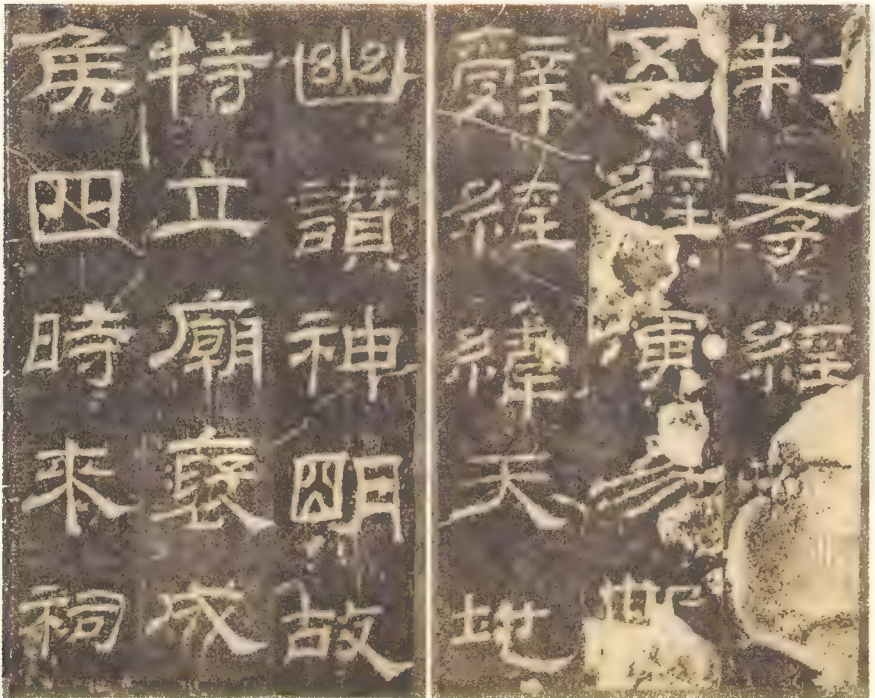 制孝經
五經演易繫
辭經緯天地
幽讚神明故
特立廟褒成
侯四時來祠